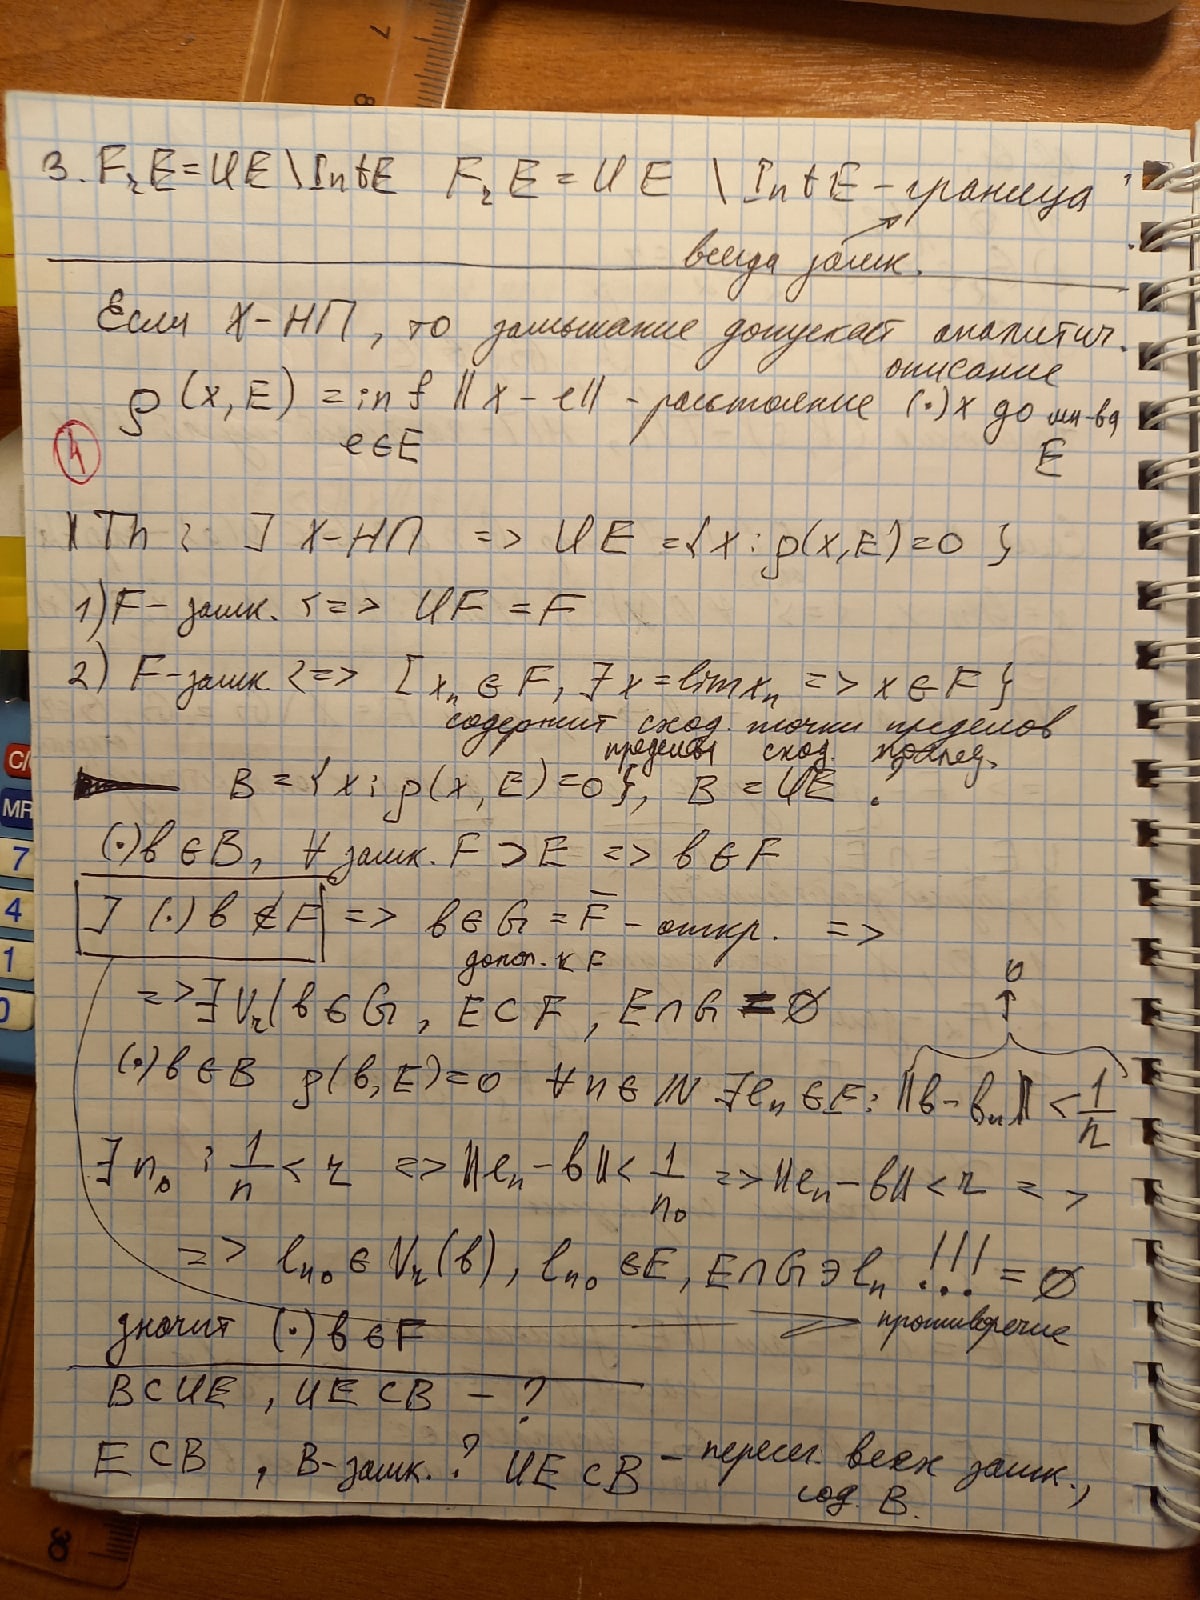 7
8
3. FrE = UE \ IntE FrE = UE \ IntE - граница
всегда замк.
Если X-НП, то замыкание допускает аналитич.
описание
ρ(x,E) = inf ||x - e|| - расстояние (·)x до мн-ва
e∈E E
4
Th: ] X-НП => UE = {x: ρ(x,E)=0}
1) F- замк. <=> UF = F
2) F-замк. <=> [xn ∈ F, ∃ x = lim xn => x ∈ F}
содержит сход. точки пределов
пределы сход.
B = {x: ρ(x,E)=0}, B = UE ?
(·)b ∈ B, ∀ замк. F ⊃ E => b ∈ F
] (·) b ∉ F => b ∈ G = F̅ - откр. =>
допол. к F
=> ∃ Vr(b ∈ G, E ⊂ F, E∩G = ∅
0
(·)b ∈ B ρ(b,E)=0 ∀n ∈ N ∃ en ∈ E: ||b - bn|| < 1/n
∃ n0 : 1/n < r => ||en - b|| < 1/n0 => ||en - b|| < r =>
=> en0 ∈ Vr(b), en0 ∈ E, E∩G ∋ en !!! = ∅
противоречие
значит (·) b ∈ F
B ⊂ UE, UE ⊂ B - ?
E ⊂ B, B-замк. ? UE ⊂ B - пересеч. всех замк.,
сод. B.
C/
MR
7
4
1
0
30